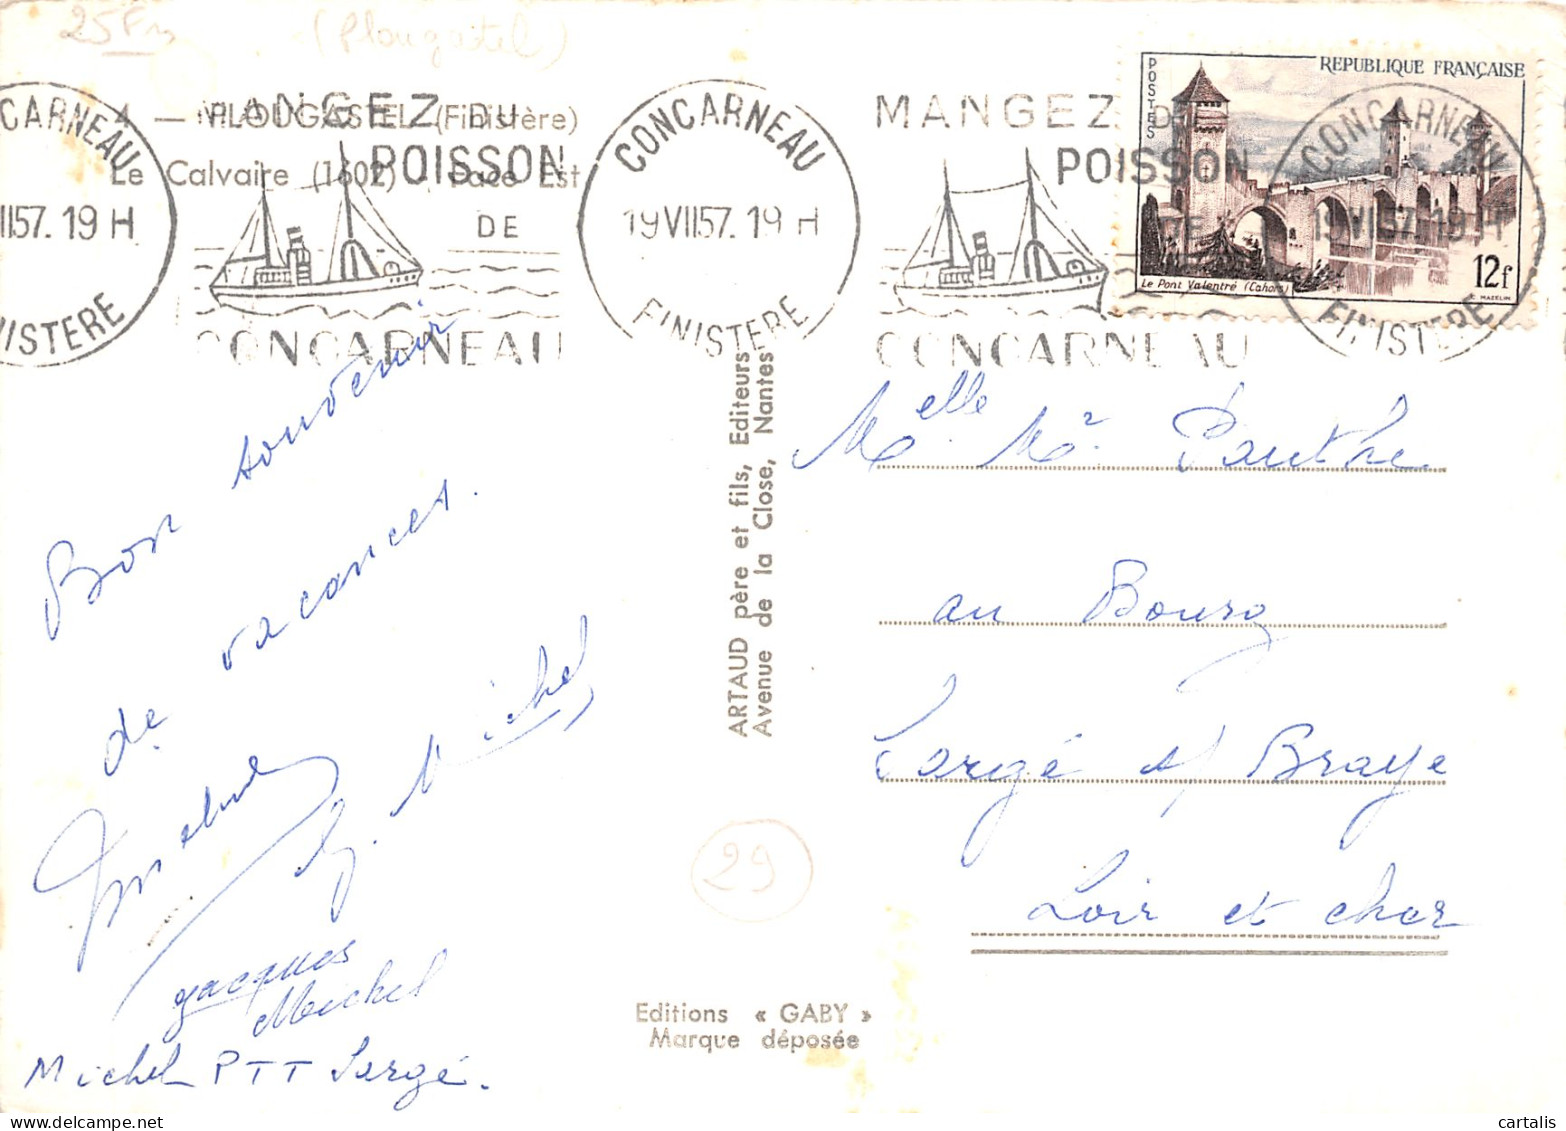 25F
(Plougastel)
4 — PLOUGASTEL (Finistère)
Le Calvaire (1602) . Face Est
CONCARNEAU
VII57. 19 H
FINISTERE
MANGEZ DU
POISSON
DE
CONCARNEAU
CONCARNEAU
19 VII57. 19 H
FINISTERE
MANGEZ DU
POISSON
DE
CONCARNEAU
CONCARNEAU
19 VII57. 19 H
FINISTERE
POSTES
REPUBLIQUE FRANÇAISE
Le Pont Valentré (Cahors)
12f
MAZELIN
Bon souvenir
de vacances.
Michel
jacques
Michel
Michel PTT Sargé.
ARTAUD père et fils, Editeurs
Avenue de la Close, Nantes
29
Editions « GABY »
Marque déposée
Melle Mr.
au Bourg
Sargé s/ Braye
Loir et cher
cartalis